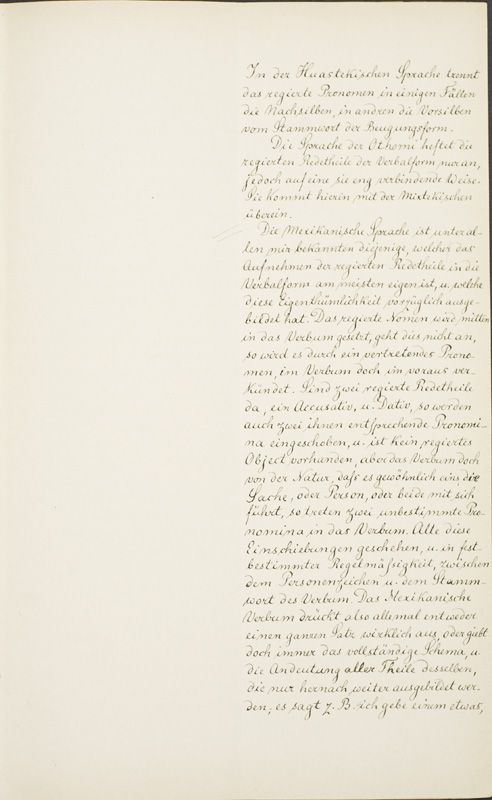 In der Huastekischen Sprache trennt
das regierte Pronomen in einigen Fällen
die Nachsilben, in andren die Vorsilben
vom Stammwort der Beugungsform.
Die Sprache der Othomi heftet die
regierten Redetheile der Verbalform nur an,
jedoch auf eine sie eng verbindende Weise.
Sie kommt hierin mit der Mixtekischen
überein.
Die Mexikanische Sprache ist unter al-
len mir bekannten diejenige, welcher das
Aufnehmen der regierten Redetheile in die
Verbalform am meisten eigen ist, u. welche
diese Eigenthümlichkeit vorzüglich ausge-
bildet hat. Das regierte Nomen wird mitten
in das Verbum gesetzt, geht dies nicht an,
so wird es durch ein vertretendes Prono-
men, im Verbum doch im voraus ver-
kündet. Sind zwei regierte Redetheile
da, ein Accusativ, u. Dativ, so werden
auch zwei ihnen entsprechende Pronomi-
na eingeschoben, u. ist kein regiertes
Object vorhanden, aber das Verbum doch
von der Natur, daſs es gewöhnlich eins, die
Sache, oder Person, oder beide mit sich
führt, so treten zwei unbestimmte Pro-
nomina in das Verbum. Alle diese
Einschiebungen geschehen, u. in fest-
bestimmter Regelmäſsigkeit, zwischen
dem Personenzeichen u. dem Stamm-
wort des Verbum. Das Mexikanische
Verbum drückt also allemal entweder
einen ganzen Satz wirklich aus, oder giebt
doch immer das vollständige Schema, u.
die Andeutung aller Theile desselben,
die nur hernach weiter ausgebildet wer-
den; es sagt z. B. ich gebe einem etwas,